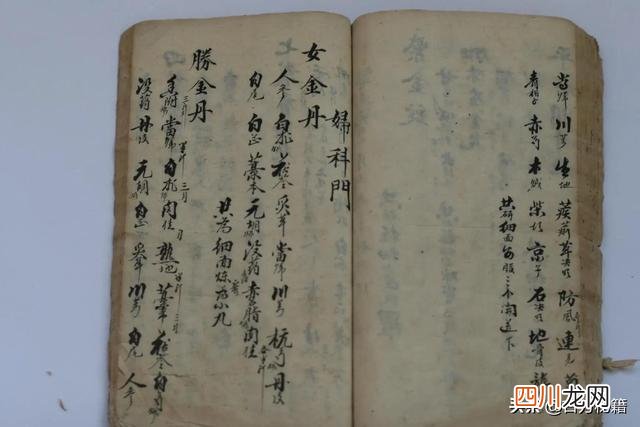 當归 川芎 生地 蒺藜 草决明 防風 連
青相子 赤芍 木賊 柴胡 京子 石决明 地骨皮
共研細面每服三不開送下
婦科門
女金丹
人參 白朮 茯苓 炙草 當歸 川芎 杭芍 丹皮
白尾 白芷 藁本 元胡 沒药 赤石脂 肉桂
共为細面炼为小丸
勝金丹
香附 當歸 白朮 肉桂 熟地 藁本 茯苓 白芍
沒药 丹皮 元胡 白芷 炙草 川芎 白尾 人參
四川龙网